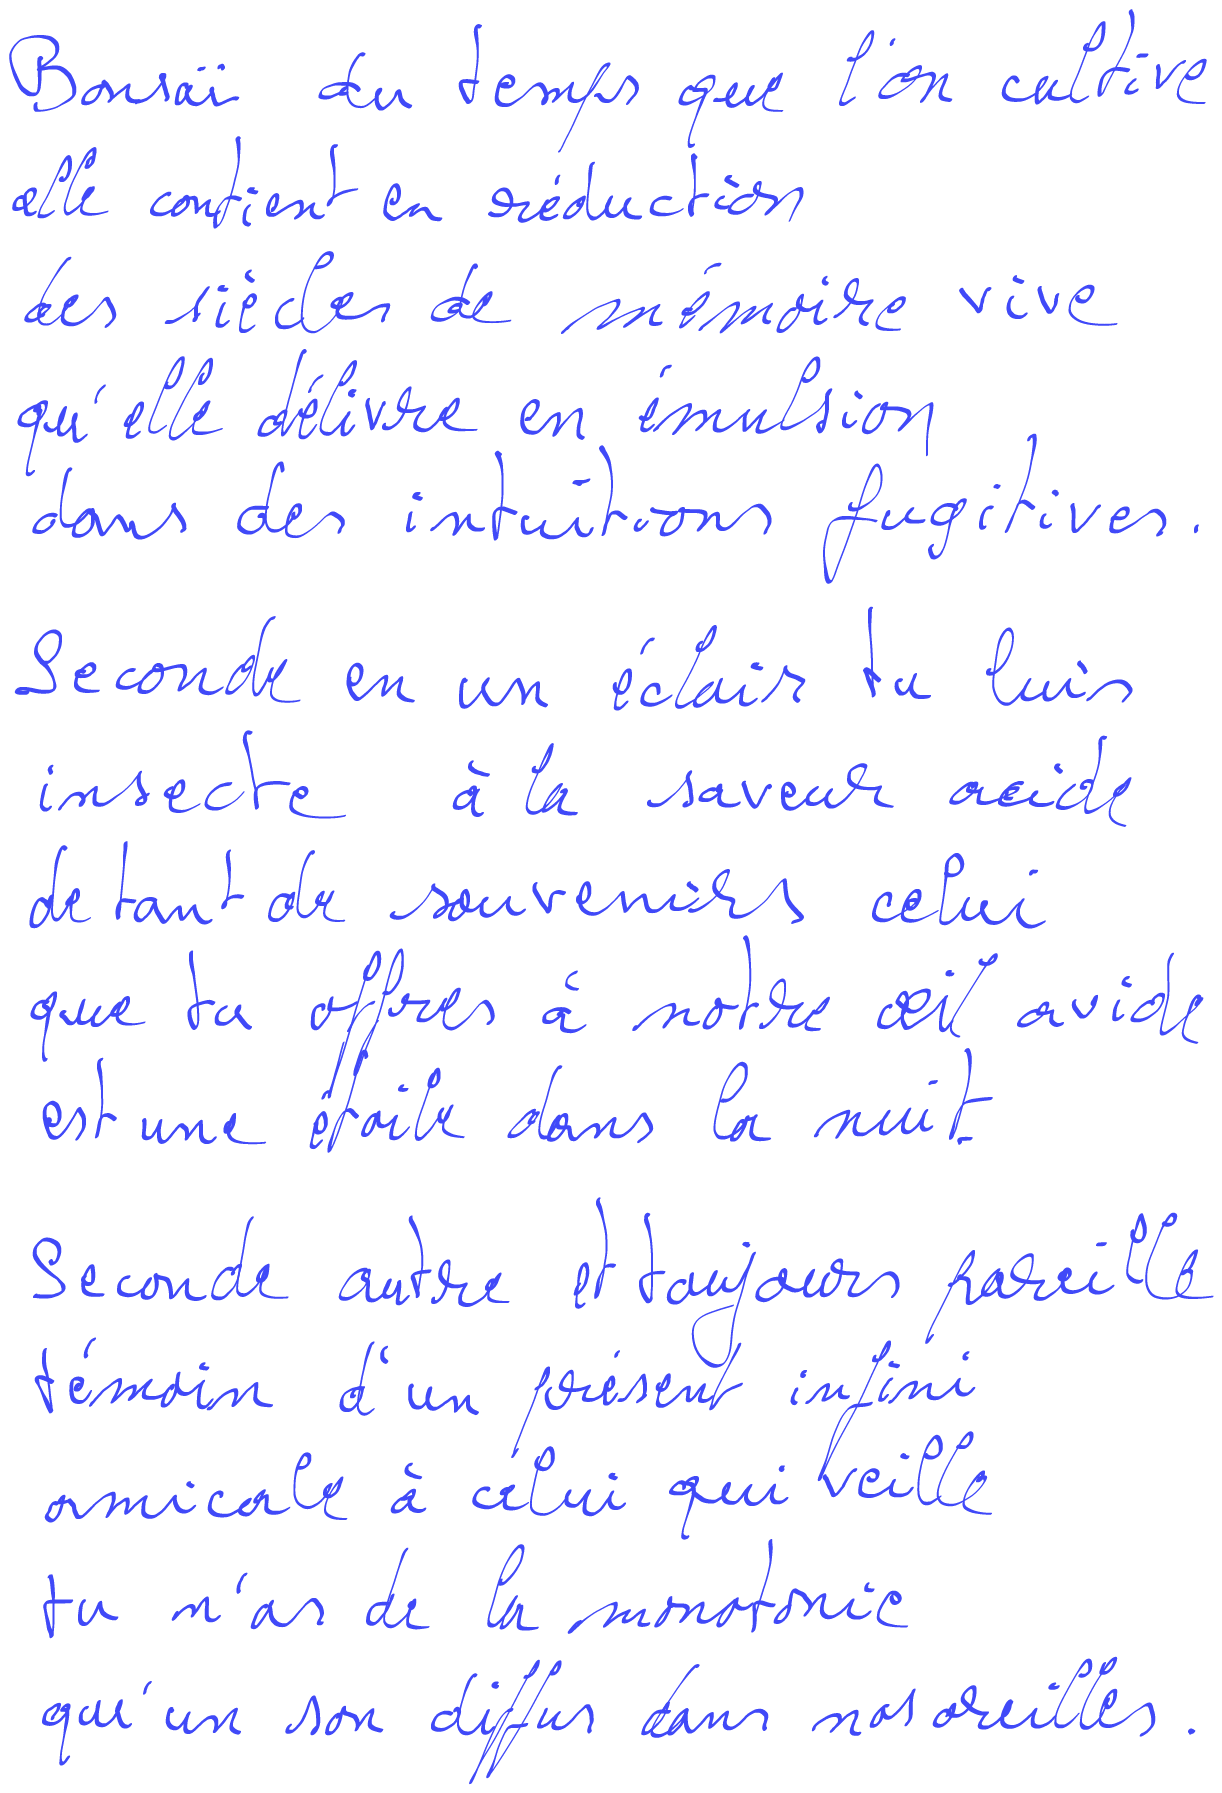 Bonsaï du temps que l'on cultive
elle contient en réduction
des siècles de mémoire vive
qu'elle délivre en émulsion
dans des intuitions fugitives.
Seconde en un éclair tu luis
insecte à la saveur acide
de tant de souvenirs celui
que tu offres à notre œil avide
est une étoile dans la nuit.
Seconde autre et toujours pareille
témoin d'un présent infini
amicale à celui qui veille
tu n'as de la monotonie
qu'un son diffus dans nos oreilles.